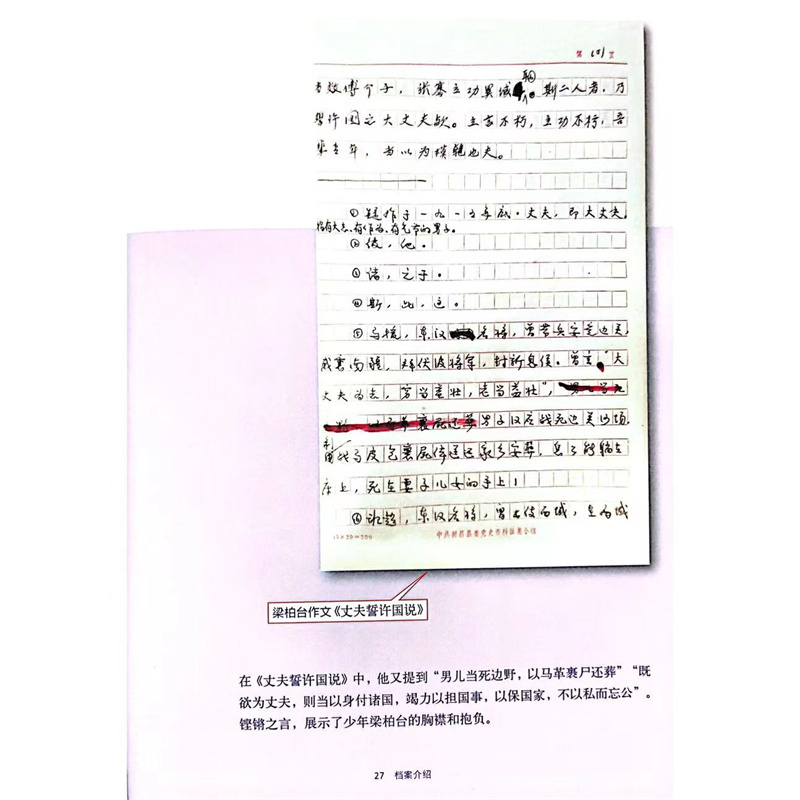 第 101 页
有效傅介子，张骞立功异域，斯二人者，乃
誓许国之大丈夫欤。立言不朽，立功不朽，吾
辈青年，当以为模范也夫。
①疑作于一九一五年底。丈夫，即大丈夫，
指有大志、有作为、有气节的男子。
②彼，他。
③诸，之于。
④斯，此，这。
⑤马援，东汉名将，曾带兵安定边关，
威震南疆，拜伏波将军，封新息侯。曾言“大
丈夫为志，穷当益壮，老当益壮”，
男子汉应战死边关沙场，
利用战马皮包裹尸体送还家乡安葬，岂能躺在
床上，死在妻子儿女的手上！
⑥班超，东汉名将，曾出使西域，在西域
15×20＝300
中共新昌县委党史资料征集小组
梁柏台作文《丈夫誓许国说》
在《丈夫誓许国说》中，他又提到“男儿当死边野，以马革裹尸还葬”“既
欲为丈夫，则当以身付诸国，竭力以担国事，以保国家，不以私而忘公”。
铿锵之言，展示了少年梁柏台的胸襟和抱负。
27 档案介绍